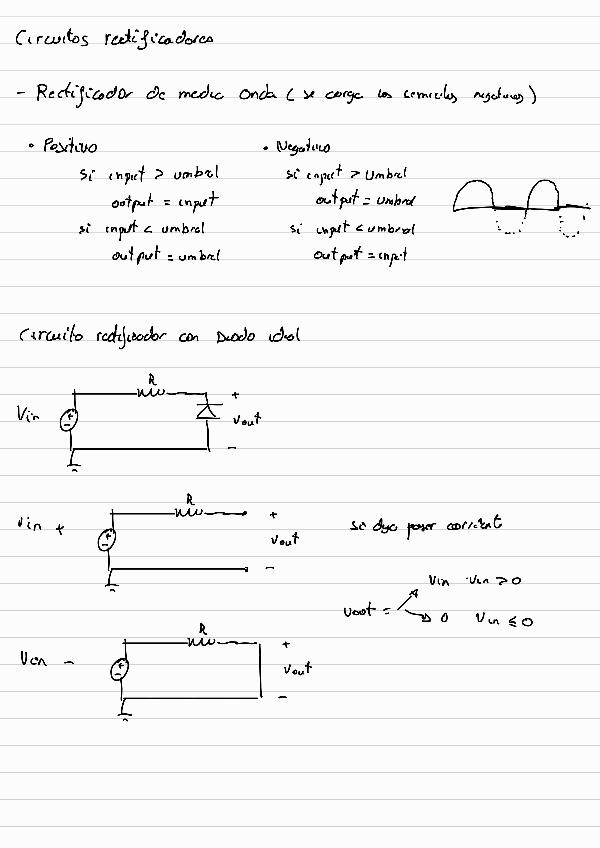 Circuitos rectificadores
- Rectificador de media onda (se carga los semiciclos negativos)
• Positivo
si input > umbral
output = input
si input < umbral
output = umbral
• Negativo
si input > Umbral
output = umbral
si input < umbral
output = input
Circuito rectificador con Diodo idel
R
Vin
+
-
+
Vout
-
Vin +
R
+
-
+
Vout
-
si deja pasar corrient
Vout =
Vin Vin > 0
0 Vin ≤ 0
Vin -
R
+
-
+
Vout
-